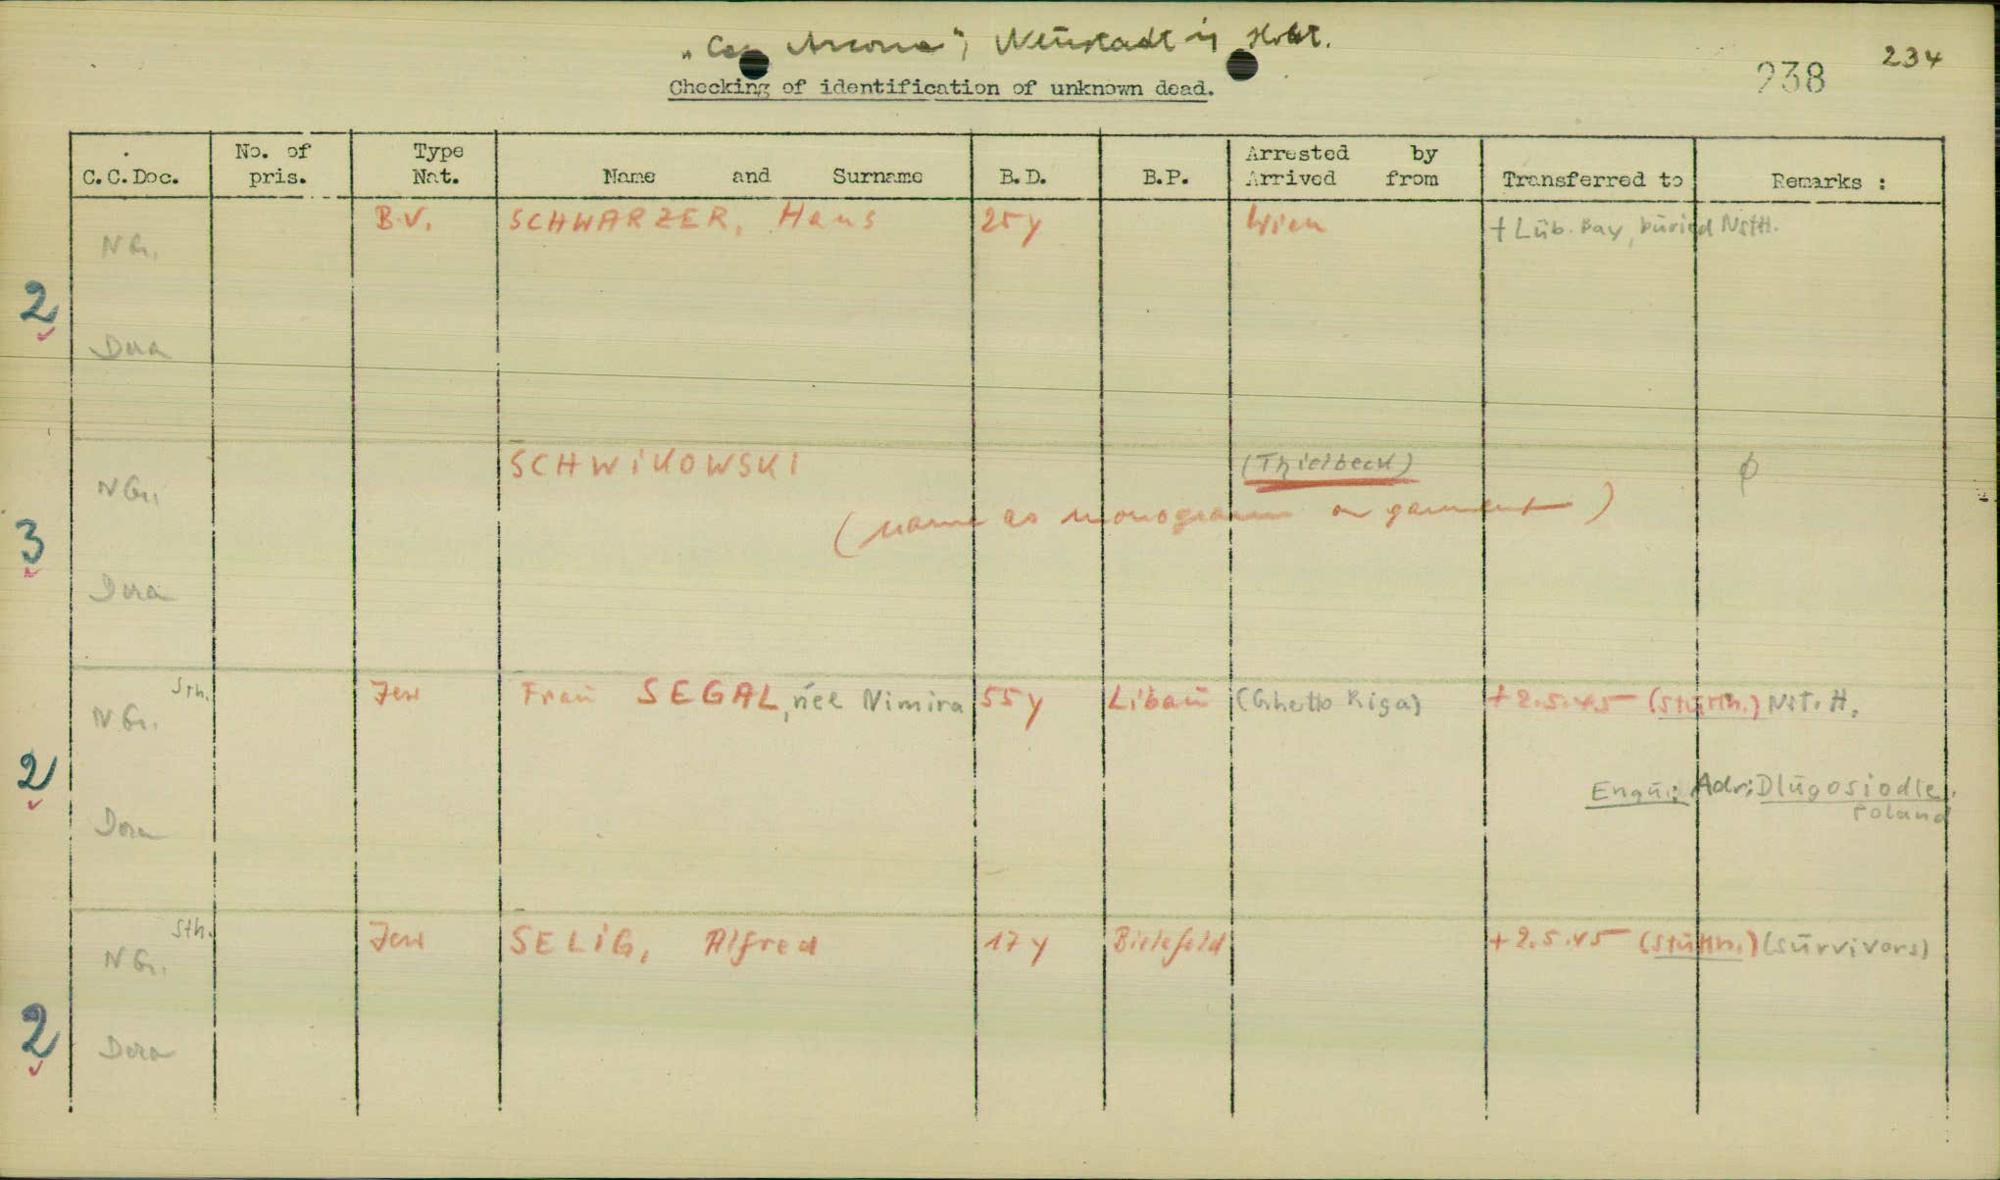 „Cap Arcona", Neustadt in Holst.
234
238
Checking of identification of unknown dead.
C.C.Doc. No. of pris. Type Nat. Name and Surname B.D. B.P. Arrested by Arrived from Transferred to Remarks :
B.V. SCHWARZER, Hans 25y Wien + Lüb. Bay, buried NstH.
NG.
2
Dora
SCHWIKOWSKI (Thielbeck) ϕ
NG.
(name as monogram on garment)
3
Dora
Sth. Jew Frau SEGAL, née Nimira 55y Libau (Ghetto Riga) + 2.5.45 (Stutth.) Nst. H.
NG.
2
Enqu.: Adr: Dlugosiodle,
Poland
Dora
Sth. Jew SELIG, Alfred 17y Bielefeld + 2.5.45 (Stutth.) (survivors)
NG.
2
Dora